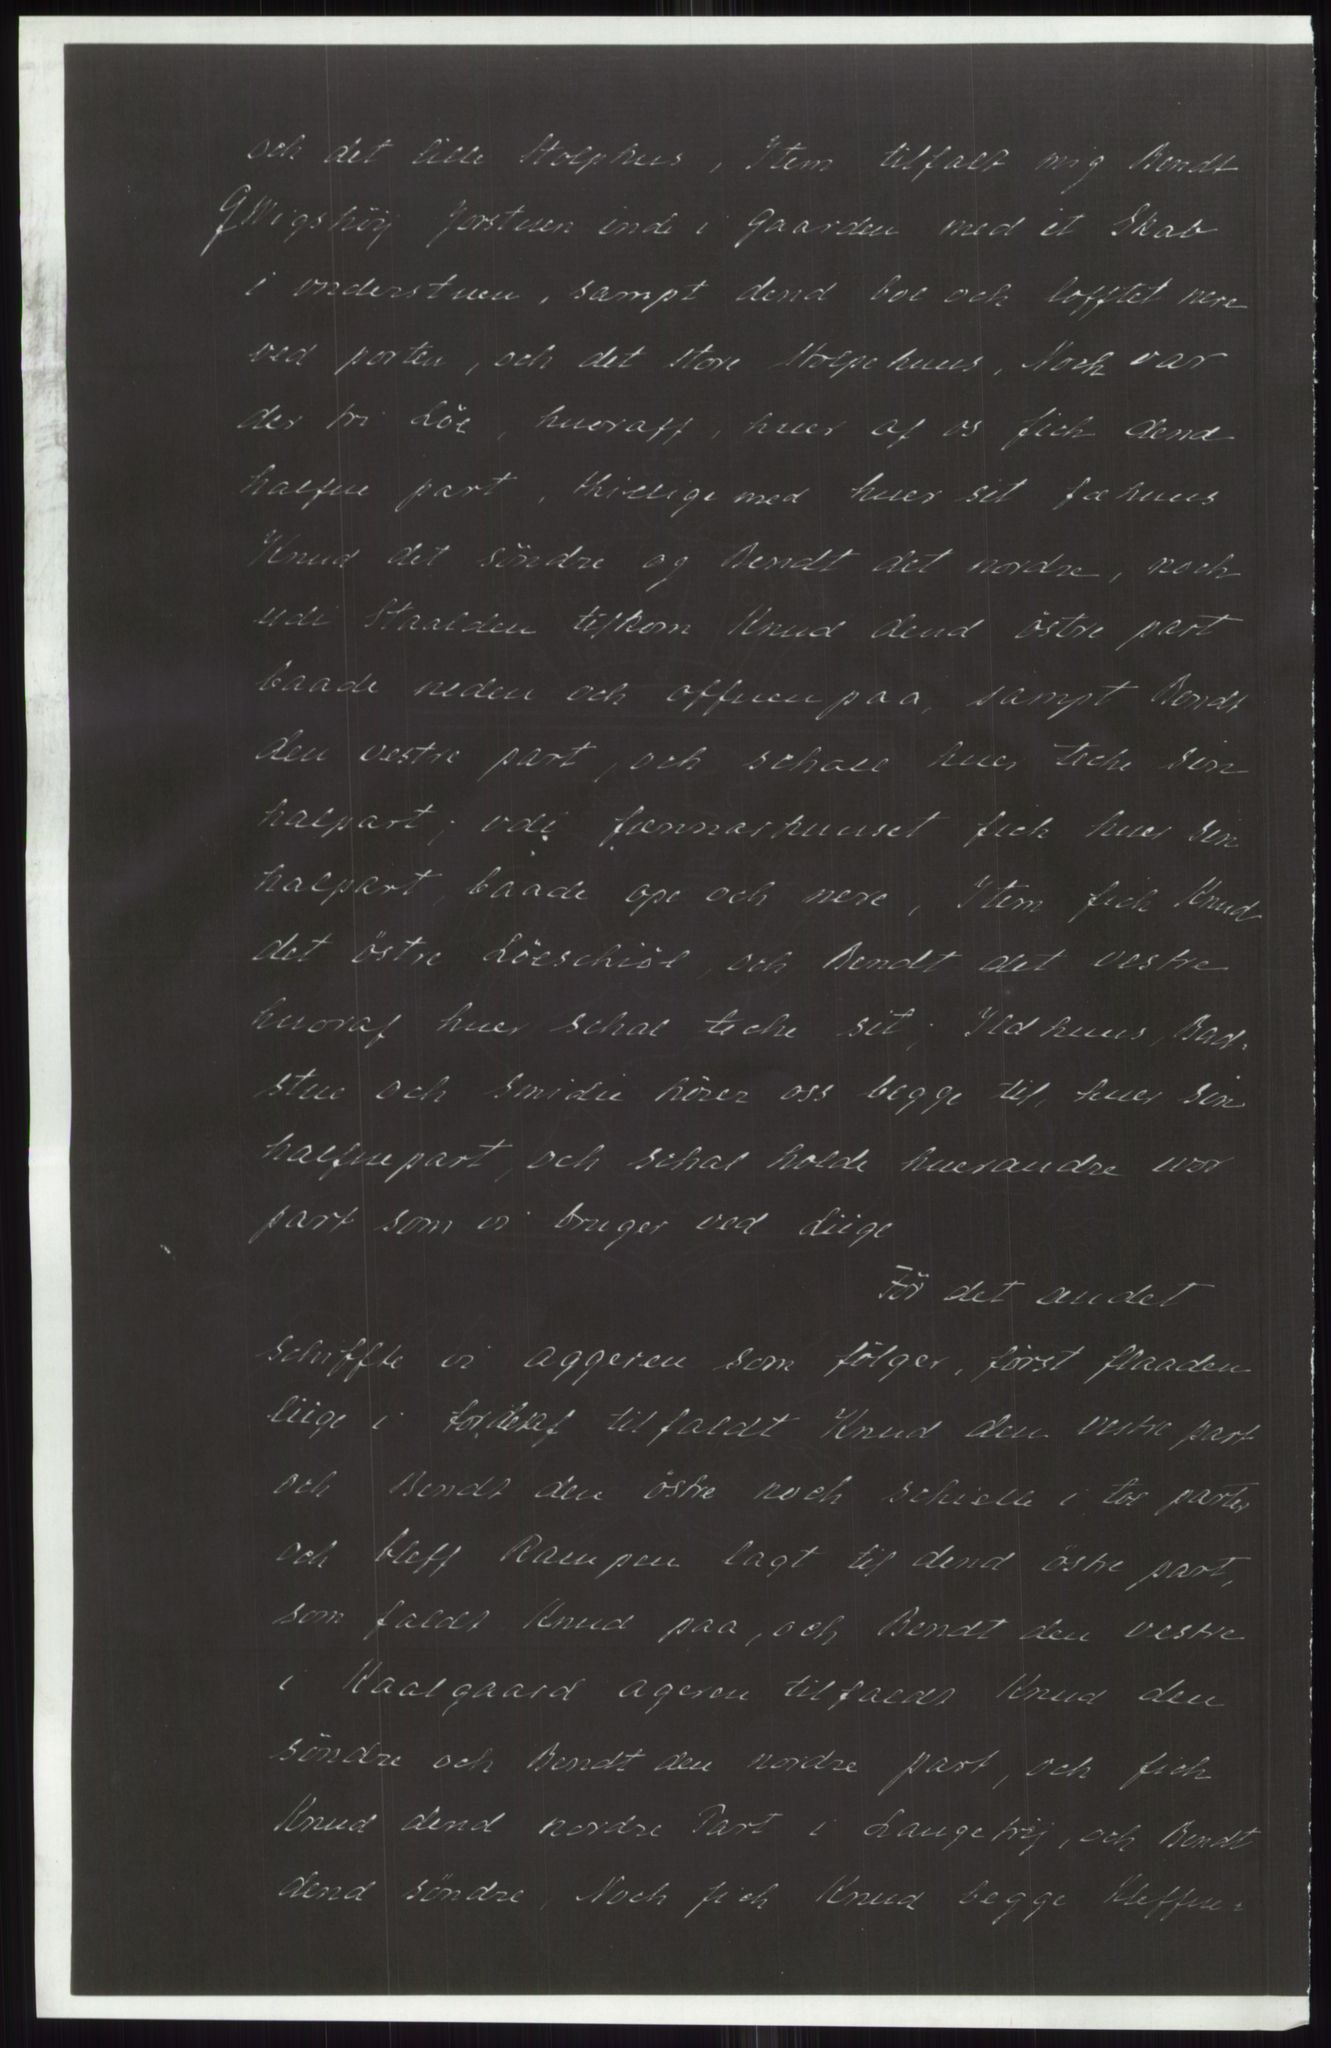 och det lille Stolphus, Item tilfalt mig Bendt
jorstuen inde i Gaarden med it Skab
i vnderstuen, sampt dend boe och lofftet nere
ved porten, och det store Stolpehuus, Noch var
der tri Löe, hueraff, huer af os fich dend
halfue part, thillige med huer sit fæhuus
Knud det söndre og Bendt det nordre, noch
udi Stalden tilkom Knud dend östre part
baade neden och offuenpaa, sampt Bendt
den vestre part, och schall huer teche sin
halpart; vdi fonnarhuuset fich huer sin
halpart, baade ope och nere, Item fich Knud
det östre Löeschiöl, och Bendt det vestre
huoraf huer schal teche sit; Ildhuus, Bad-
stue och Smidie hörer oss begge til, huer sin
halfuepart, och schal holde huerandre uor
part som vi bruger ved diige
För det andet
schiffte vi aggeren som fölger, först flaaden
liige i tilfaldt Knud den vestre part
och Bendt den östre noch schielle i toe parter
och bleff Rampen lagt til dend östre part,
som faldt Knud paa, och Bendt den vestre
i Kaalgaard ageren tilfaldt Knud den
söndre och Bendt den nordre part, och fich
Knud dend nordre Part i och Bendt
dend söndre, Noch fich Knud begge Kleffue-